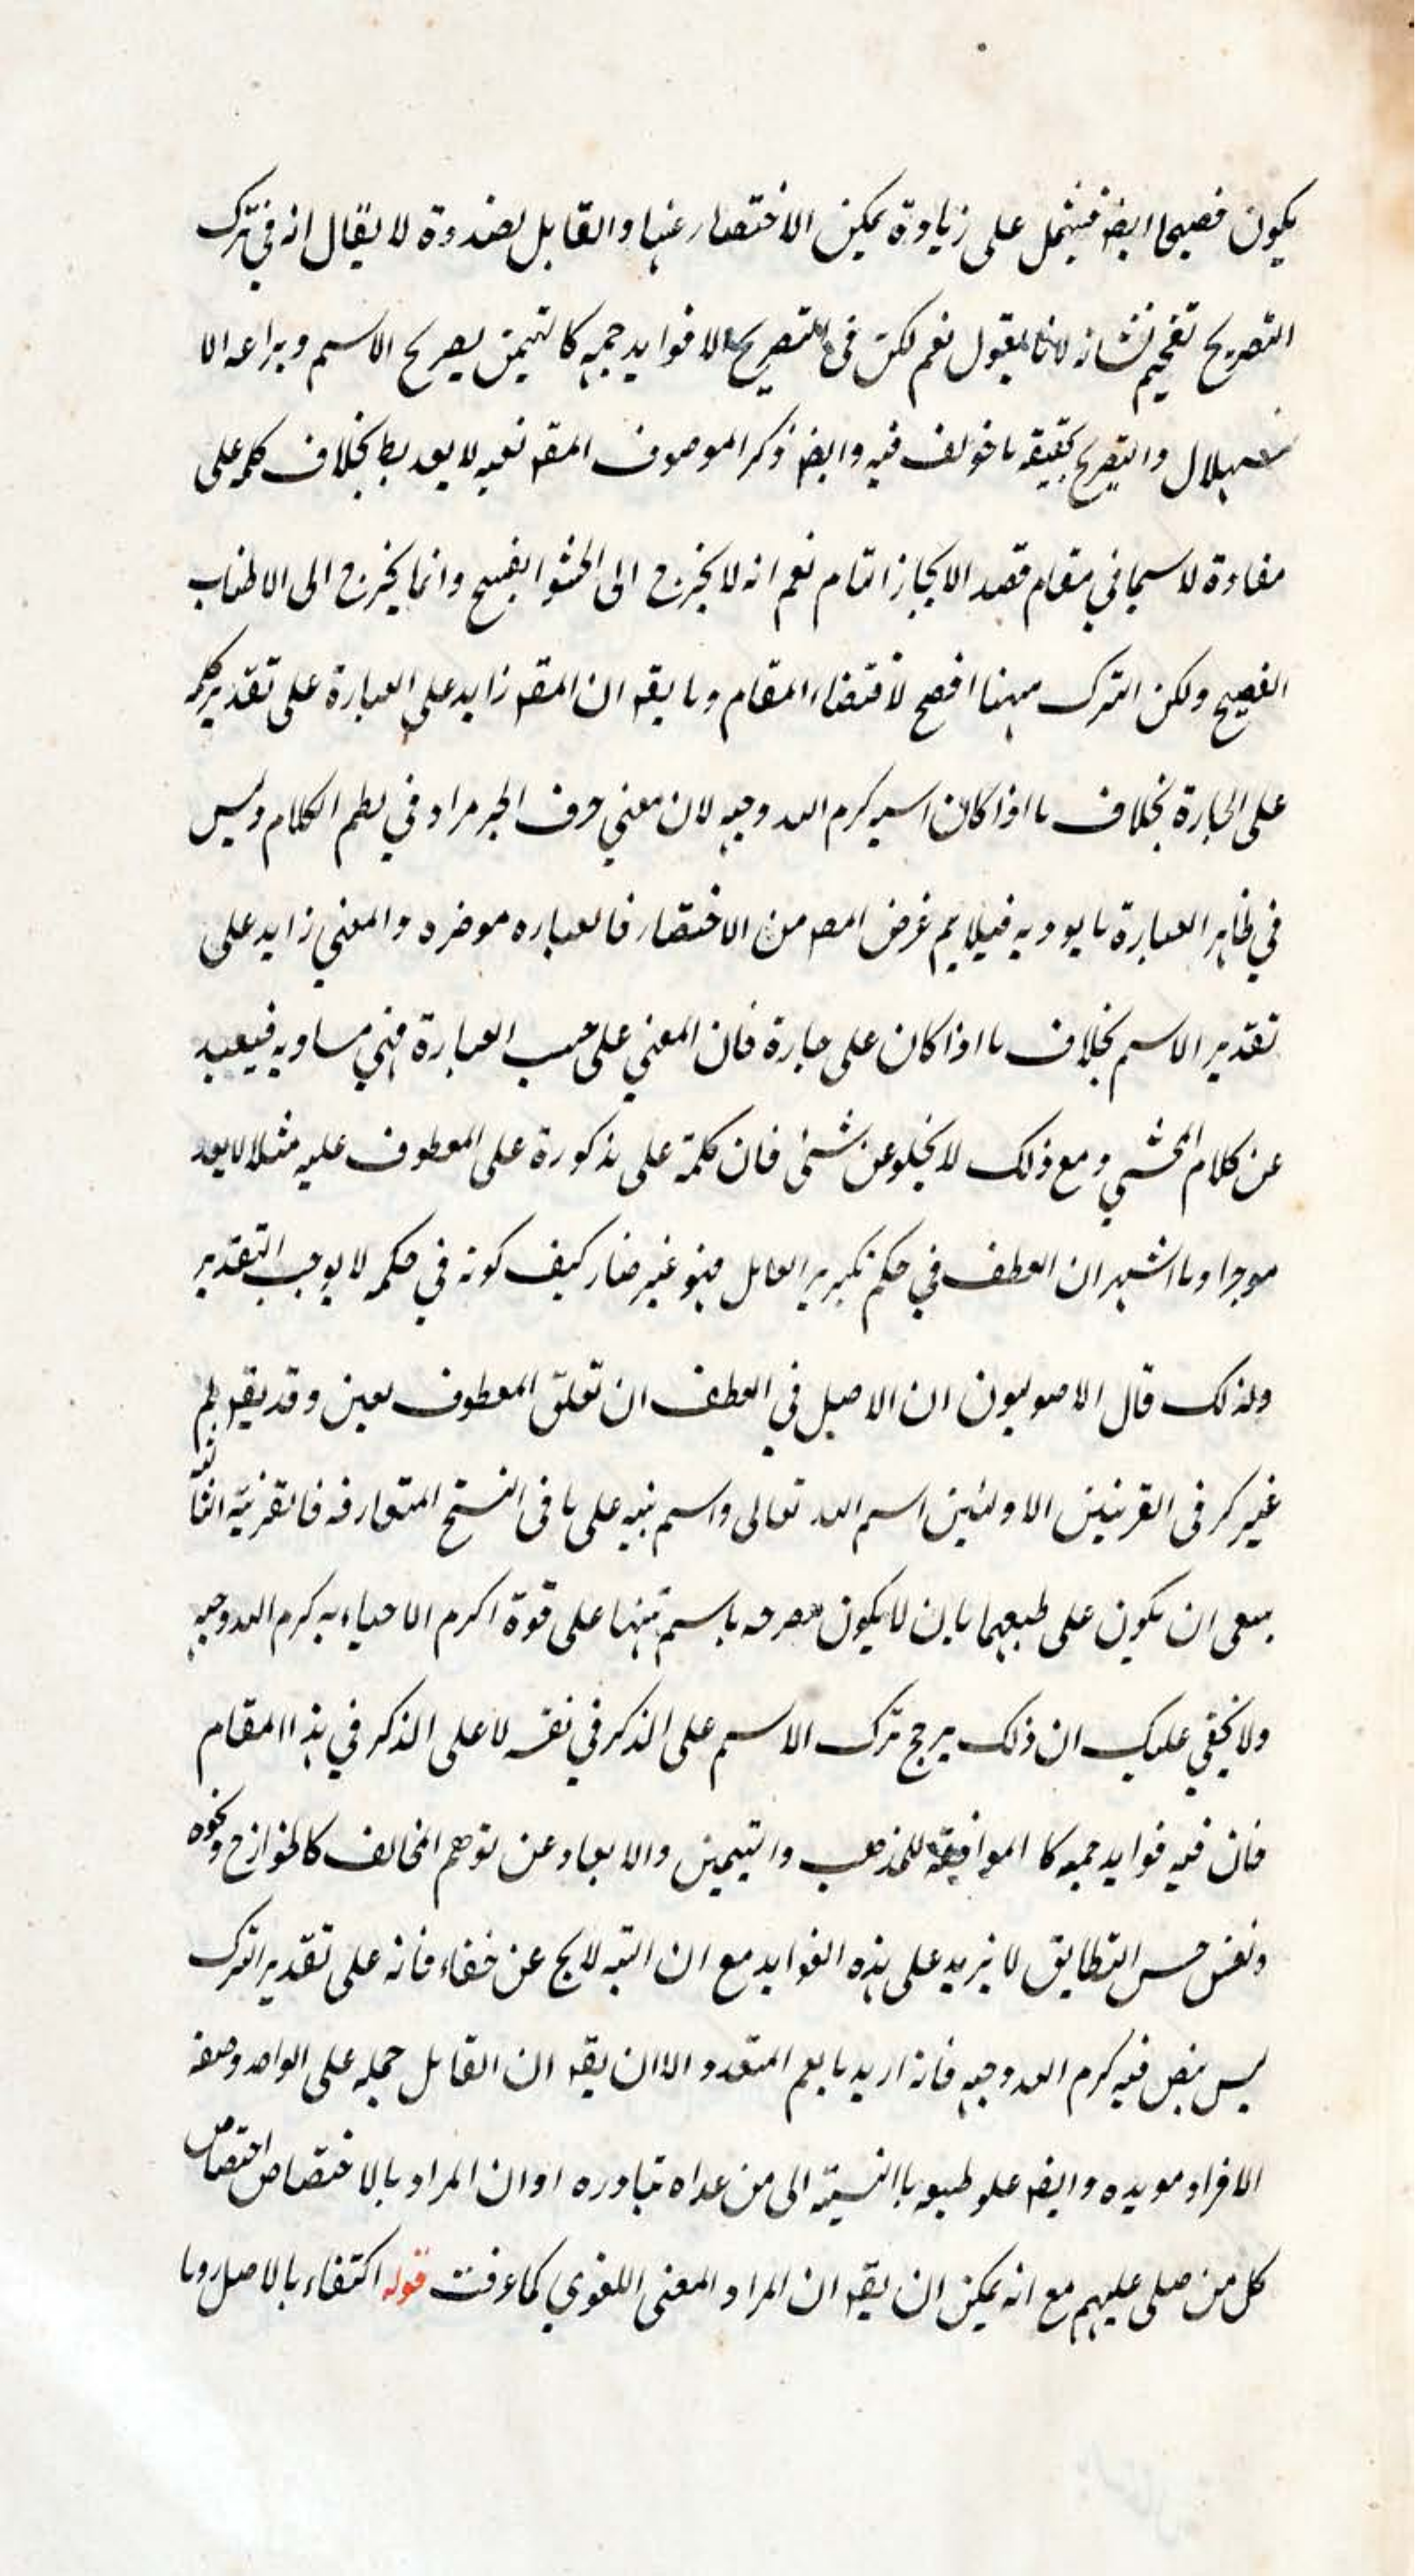 يكون فصيحا ايضا فيشمل على زيادة يمكن الاختصار عنها والقابل بصدده لا يقال انه في ترك
التصريح تفخيم لشانه لانا نقول نعم لكن في التصريح الا فوايد جمه كالتيمن بصريح الاسم وبراعه الا
ستهلال والتصريح بحقيقه ما خولف فيه وايضا ذكر الموصوف المقد نعيه لا يعد بخلاف كلمه على
معادة لا سيما في مقام قصد الايجاز التام نعم انه لا يخرج الى الحشو القبيح وانما يخرج الى الاطناب
الفصيح ولكن الترك ههنا افصح لاقتضاء المقام وما يقه ان المقد زايد على العبارة على تقدير كلمه
على الجارة بخلاف ما اذا كان اسيه كرم الله وجهه لان معني حرف الجر مراد في نظم الكلام وليس
في ظاهر العبارة ما يوديه فيلايم غرض المص من الاختصار فالعباره موخره والمعني زايد على
تقدير الاسم بخلاف ما اذا كان على جارة فان المعني على حسب العبارة فهي مساويه فيعيد
عن كلام المحشي ومع ذلك لا يخلو عن شئ فان كلمة على مذكورة على المعطوف عليه مثلا لا يعد
موجزا وما اشتهر ان العطف في حكم تكرير العامل فهو غير ضار كيف كونه في حكمه لا يوجب التقدير
ولذلك قال الاصوليون ان الاصل في العطف ان تعلق المعطوف بعين وقد يقه لم
غير كر في القرينين الاوليين اسم الله تعالى واسم نبيه على ما في النسخ المتعارفه فالقرينة الثانيه
ينبغي ان تكون على طبعهما بان لا يكون مصرحه باسم تنبيها على قوة اكرم الاحياء به كرم الله وجهه
ولا يخفي عليك ان ذلك يرجح ترك الاسم على الذكر في نفسه لا على الذكر في هذا المقام
فان فيه فوايد جمه كا الموافقة للمذهب والتيمن والابعاد عن توهم المخالف كالخوارج ونحوه
ونفس حسن التطابق لا يزيد على هذه الفوايد مع ان التنبه لا يخ عن خفاء فانه على تقدير الترك
ليس بنص فيه كرم الله وجهه فانه اريد ما يعم المتعدد الا ان يقه ان القابل حمله على الواحد وصفه
الافراد مويده وايضا علو طبعه باالنسبة الى من عداه تبادره او ان المراد بالاختصاص اختصاص
كل من صلى عليهم مع انه يمكن ان يقه ان المراد المعنى اللغوي كما عرفت قوله اكتفاء بالاصل وما